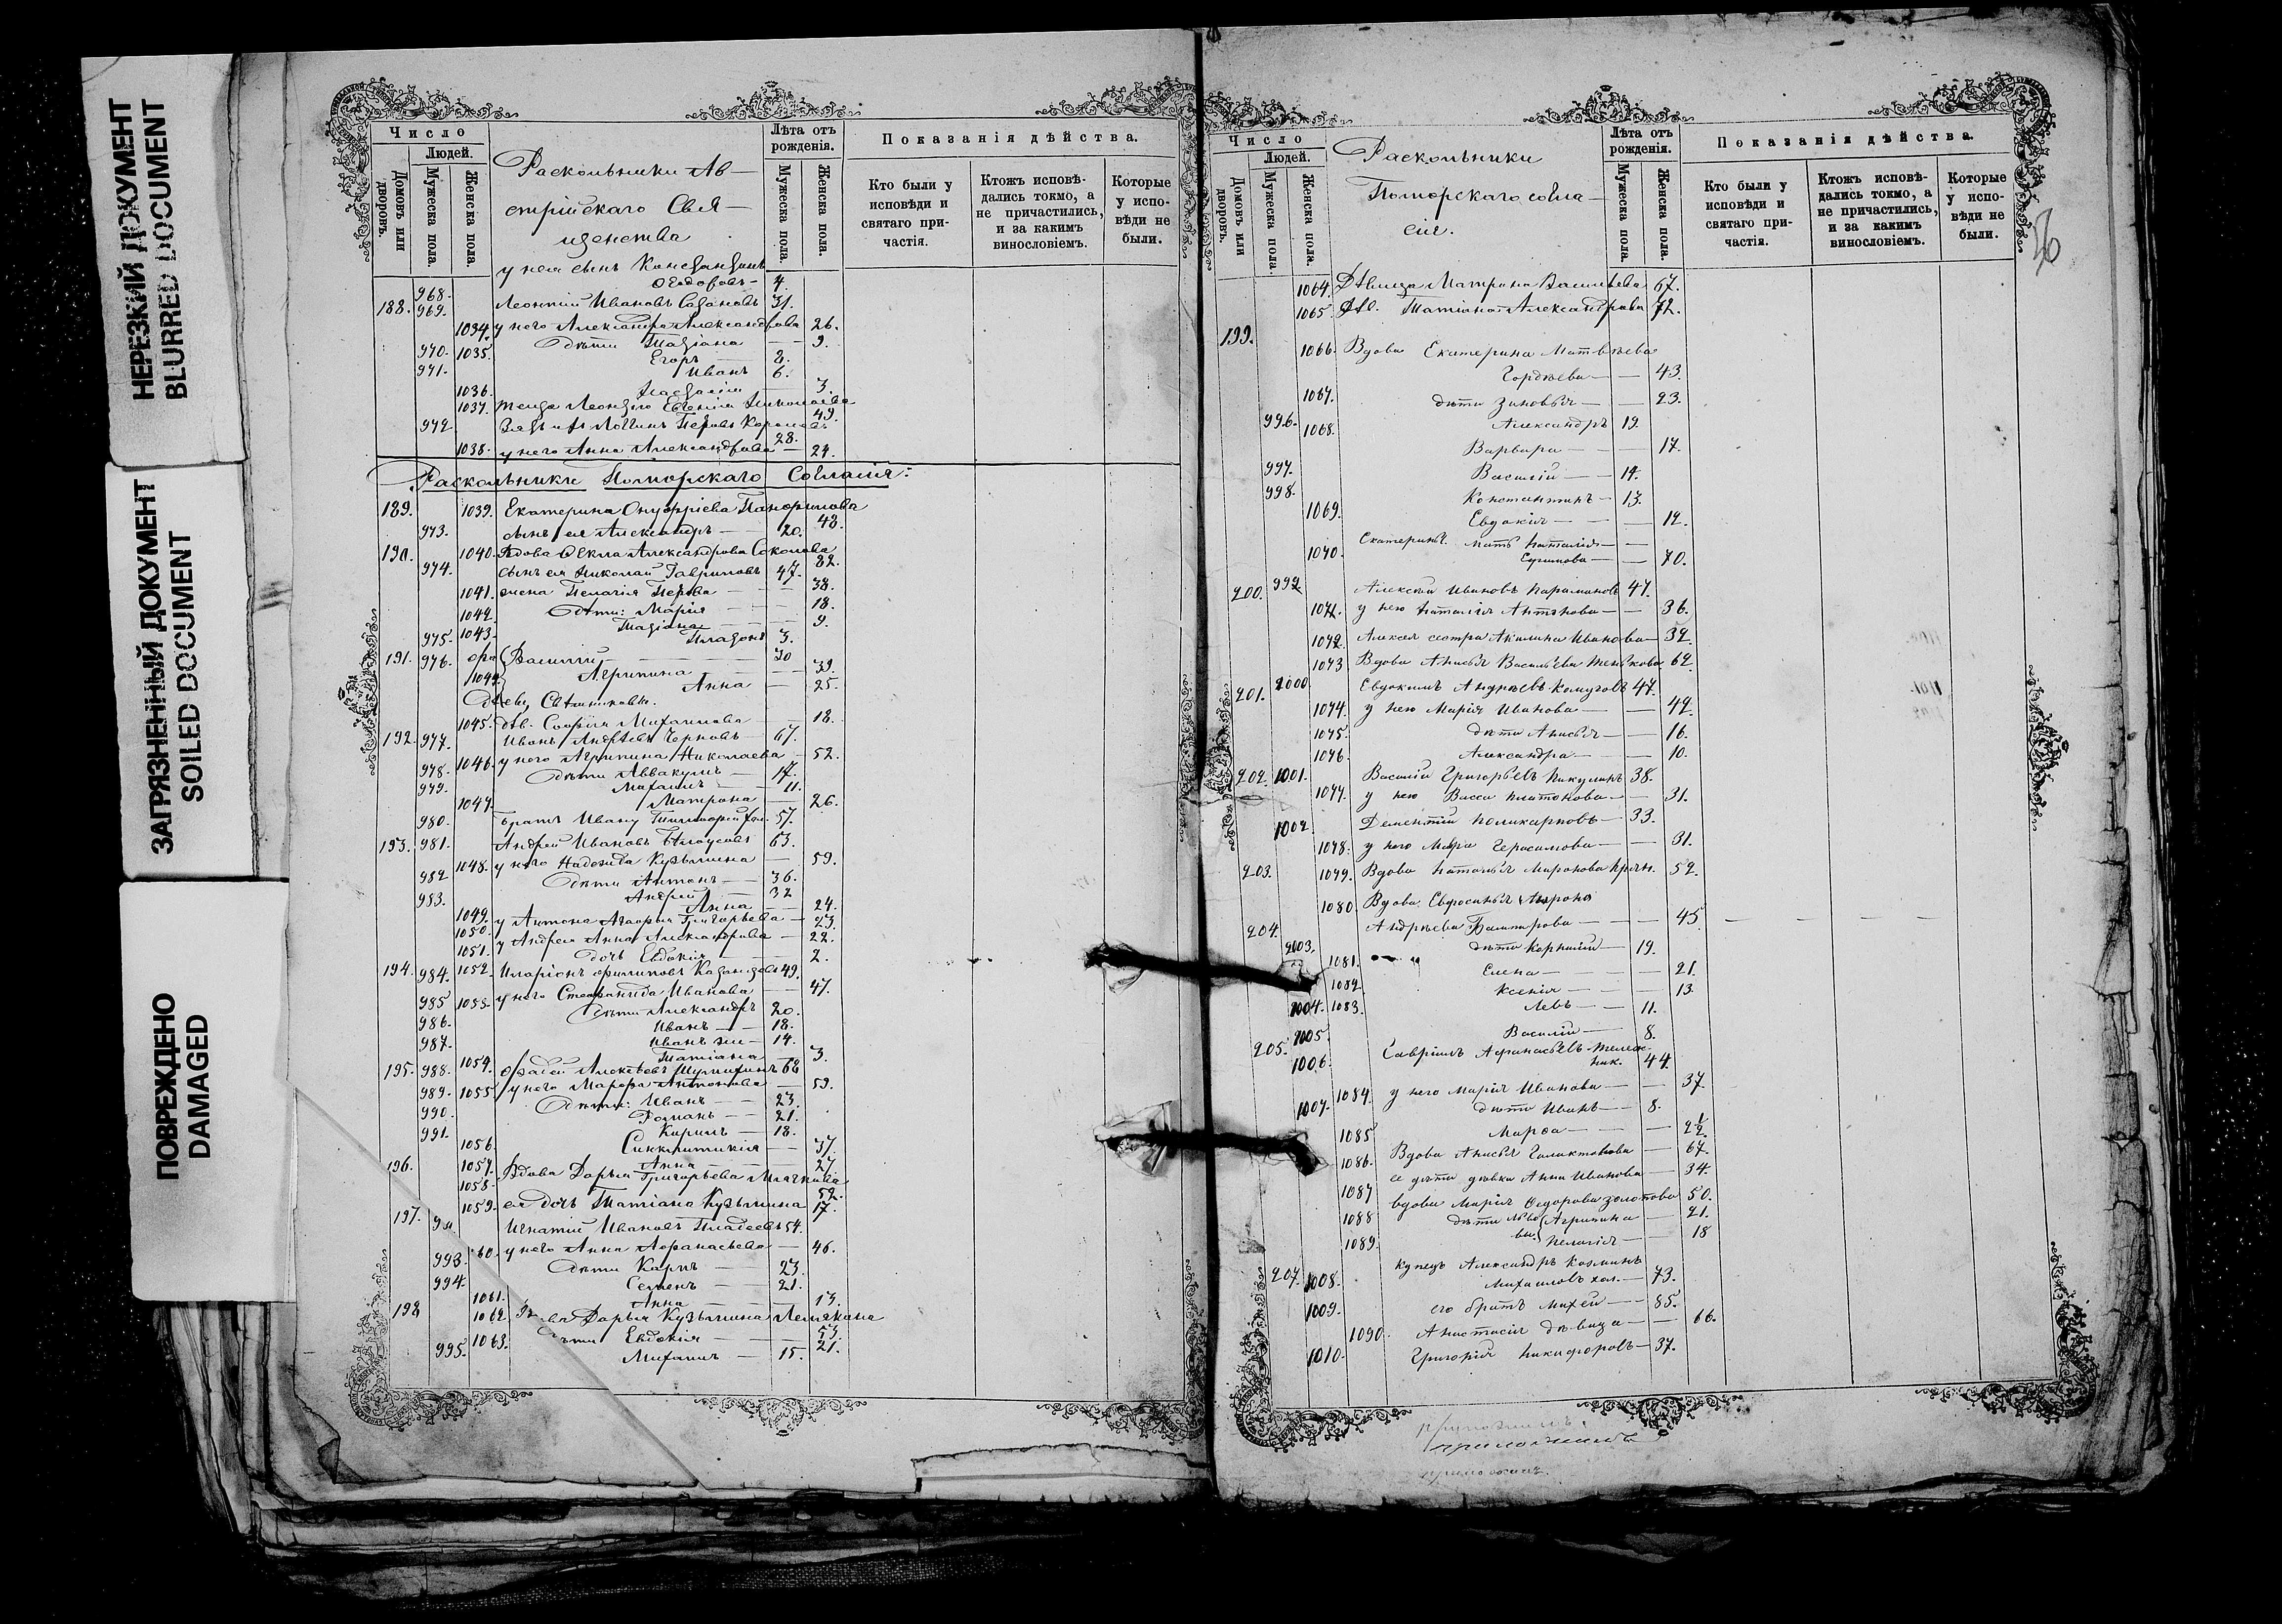 НЕРЕЗКИЙ ДОКУМЕНТ
BLURRED DOCUMENT
ЗАГРЯЗНЕННЫЙ ДОКУМЕНТ
SOILED DOCUMENT
ПОВРЕЖДЕНО
DAMAGED
Число
Людей.
Домовъ или дворовъ.
Мужеска пола.
Женска пола.
Раскольники Ав-
стрійскаго Свя-
щенства
Лѣта отъ рожденія.
Мужеска пола.
Женска пола.
Показанія дѣйства.
Кто были у исповѣди и святаго при-частія.
Ктожъ исповѣ-дались токмо, а не причастились, и за какимъ винословіемъ.
Которые у испо-вѣди не были.
968. у нея сынъ Константинъ
Ѳедоровъ 4.
188. 969. Леонтій Ивановъ 31.
1034. у него Александра Александрова 26.
1035. дѣти Татіана 9.
970. Егоръ 8.
971. Иванъ 6.
1036. 3.
1037. Евгенія Николаева 49.
972. 28.
1038. у него Анна Александрова 24.
Раскольники Поморскаго Согласія:
189. 1039. Екатерина Онуфріева Панфилова 48.
973. сынъ ея Александръ 20.
190. 1040. Вдова Ѳекла Александрова Соколова 82.
974. сынъ ея Николай Гавриловъ 47.
1041. жена Пелагія Петрова 38.
1042. дѣти: Марія 18.
1043. Татіана 9.
975. Платонъ 3.
191. 976. Василий 30
1044. Агрипина 39.
Анна 25.
1045. дѣв. Софія Михаилова 18.
192. 977. Иванъ Андреевъ Черновъ 67.
1046. у него Агрипина Николаева 52.
978. дѣти Аввакумъ 17.
979. Михаилъ 11.
1047. Матрона 26.
980. братъ Ивану 57.
193. 981. Андрей Ивановъ Бѣлоусовъ 63.
1048. у него Надежда Кузьмина 59.
982 дѣти Антонъ 36.
983. Андрей 32
1049. Анна 24.
1050. у Антона Агафія Григорьева 23.
1051. у Андрея Анна Александрова 22.
1052. дочь Евдокія 2.
194. 984. Иларіонъ Филиповъ 49.
1053. у него Стефанида Иванова 47.
985 дѣти Александръ 20.
986. Иванъ 18.
987. Иванъ же 14.
1054. Татіана 3.
195. 988. Алексѣевъ 68
1055. у него Марфа Антонова 59.
989. дѣти: Иванъ 23.
990. Романъ 21.
991. Кирилъ 18.
1056. Синклитикія 37.
1057. Анна 27.
196. 1058. Вдова Дарья Григорьева 52.
1059. ея дочь Татіана Кузьмина 17.
197. Игнатій Ивановъ 54.
60. у него Анна Афанасьева 46.
993. дѣти Карпъ 23.
994. Семенъ 21.
1061. Анна 13.
198 1062. Дарья Кузьмина 53.
1063. дѣти Евдокія 21.
995. Михаилъ 15.
Число
Людей.
Домовъ или дворовъ.
Мужеска пола.
Женска пола.
Раскольники
Поморскаго согла-
сія.
Лѣта отъ рожденія.
Мужеска пола.
Женска пола.
Показанія дѣйства.
Кто были у исповѣди и святаго при-частія.
Ктожъ исповѣ-дались токмо, а не причастились, и за какимъ винословіемъ.
Которые у испо-вѣди не были.
36
1064. Дѣвица Матрона Васильева 67.
1065. Дѣв. Татіана Александрова 72.
199. 1066. Вдова Екатерина Матвѣева
Гордѣева 43.
1067. дѣти Зиновья 23.
996. Александръ 19.
1068. Варвара 17.
997. Василій 14.
998. Константинъ 13.
1069. Евдокія 12.
1070. Екатерины мать Наталія 70.
200. 999. Алексѣй Ивановъ Парамоновъ 47.
1071. у него Наталія Антонова 36.
1072. Алексѣя сестра Акилина Иванова 32.
1073 Вдова Анисья Васильева 62.
201. 1000 Евдокимъ Андреевъ 47.
1074. у него Марія Иванова 42.
1075. дѣти Анисья 16.
1076. Александра 10.
202. 1001. Василій Григорьевъ Никулинъ 38.
1077. у него Васса Платонова 31.
1002 Дементій Поликарповъ 33.
1078. у него Герасимова 31.
203. 1079. Вдова Наталья Миронова 52.
1080. Вдова Евфросинья
204. Андреева 45
1003. дѣти Корнилій 19.
1081. Елена 21.
1082 Ксенія 13.
1004. 1083. Левъ 11.
1005. Василій 8.
205. 1006. Гавріилъ Афанасьевъ 44.
1084. у него Марія Иванова 37.
1007. дѣти Иванъ 8.
1085 Марѳа 2½.
1086. Вдова Анисья Галактионова 67.
1087 ее дѣти дѣвка Анна Иванова 34.
1088 вдова Марія Ѳедорова Золотова 50.
дѣти Агрипина 21.
1089. Пелагія 18
207. 1008. купецъ Александръ Козминъ
Михаиловъ хол. 73.
1009. его братъ Михей 85.
1090. Анастасія дѣвица 66.
1010. Григорій Никифоровъ 37.